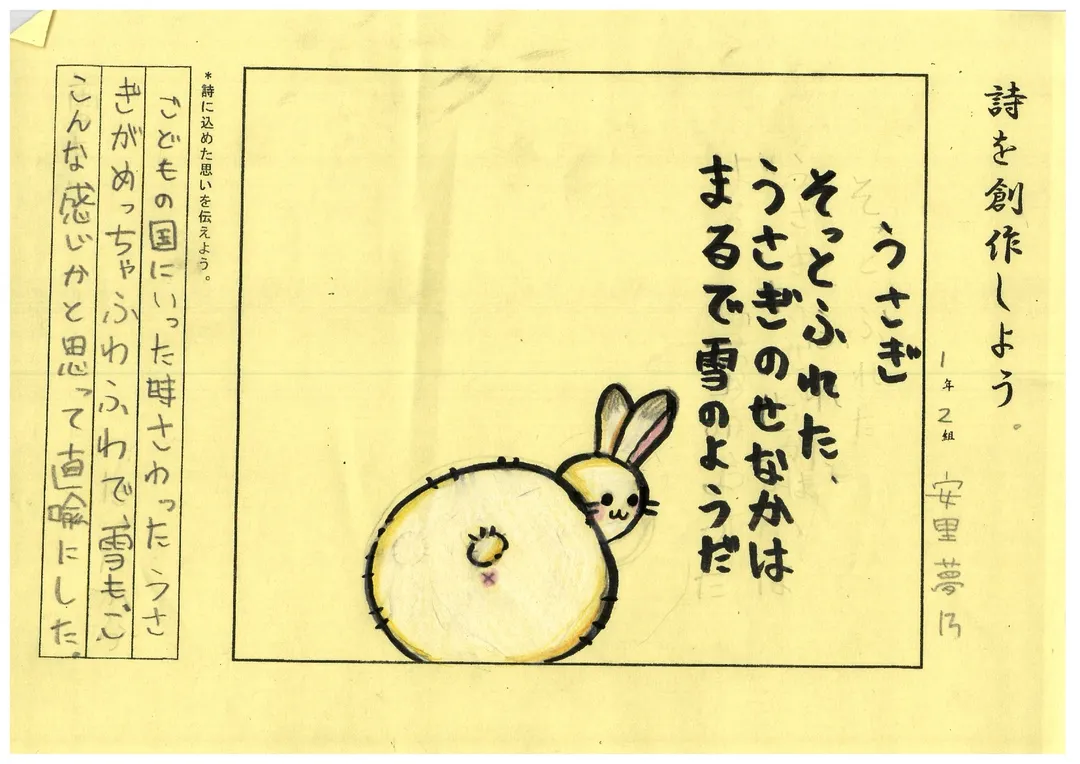 詩を創作しよう。
1年2組 安里夢乃
うさぎ
そっとふれた、
うさぎのせなかは
まるで雪のようだ
*詩に込めた思いを伝えよう。
こどもの国にいった時さわったうさ
ぎがめっちゃふわふわで雪もこ
こんな感じかと思って直喩にした。